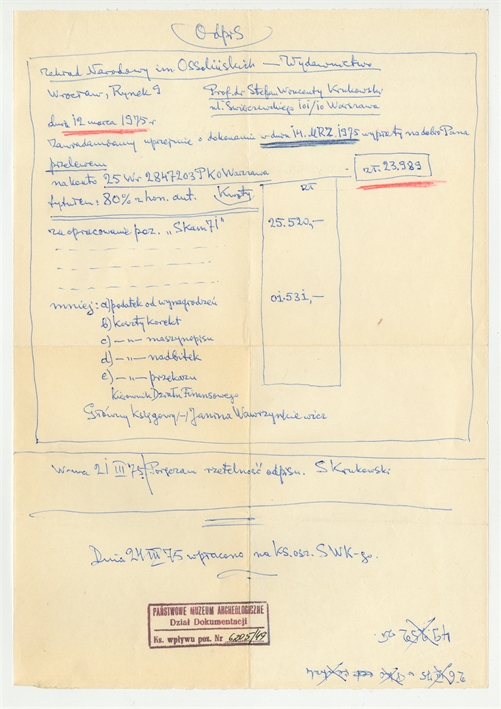 Odpis
Zakład Narodowy im Ossolińskich — Wydawnictwo
Wrocław, Rynek 9
Prof. dr Stefan Wincenty Krukowski
ul. Świerczewskiego 101/10 Warszawa
dniś 12 marca 1975 r
Zawiadamiamy uprzejmie o dokonaniu w dniu 14. MRZ. 1975 wypłaty na dobro Pana
przelewem
na konto 25 Wr 2847203 PKO Warszawa
zł. 23.989
tytułem: 80% z hon. aut. Kwoty
zł
za opracowanie poz. „Skam 71"
25.520,—
mniej: a) podatek od wynagrodzeń
01.531,—
b) koszty korekt
c) —„— maszynopisu
d) —„— nadbitek
e) —„— przekazu
Kierownik Działu Finansowego
Główny Księgowy /-/ Janina Wawrzynkiewicz
W-wa 21 III 75 Poręczam rzetelność odpisu. S Krukowski
Dnia 24 III 75 wpracono na ks. osz. SWK-go.
PAŃSTWOWE MUZEUM ARCHEOLOGICZNE
Dział Dokumentacji
Ks. wpływu poz. Nr